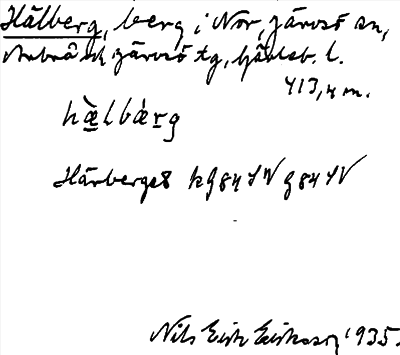 Hälberg, berg i Nor, Järvsö sn,
Arbrå och Järvsö tg, Gävleb. l.
413,4 m.
hæ̀lbærg
Härberget kg 84 SV g 84 SV
Nils Erik Eriksson 1935.